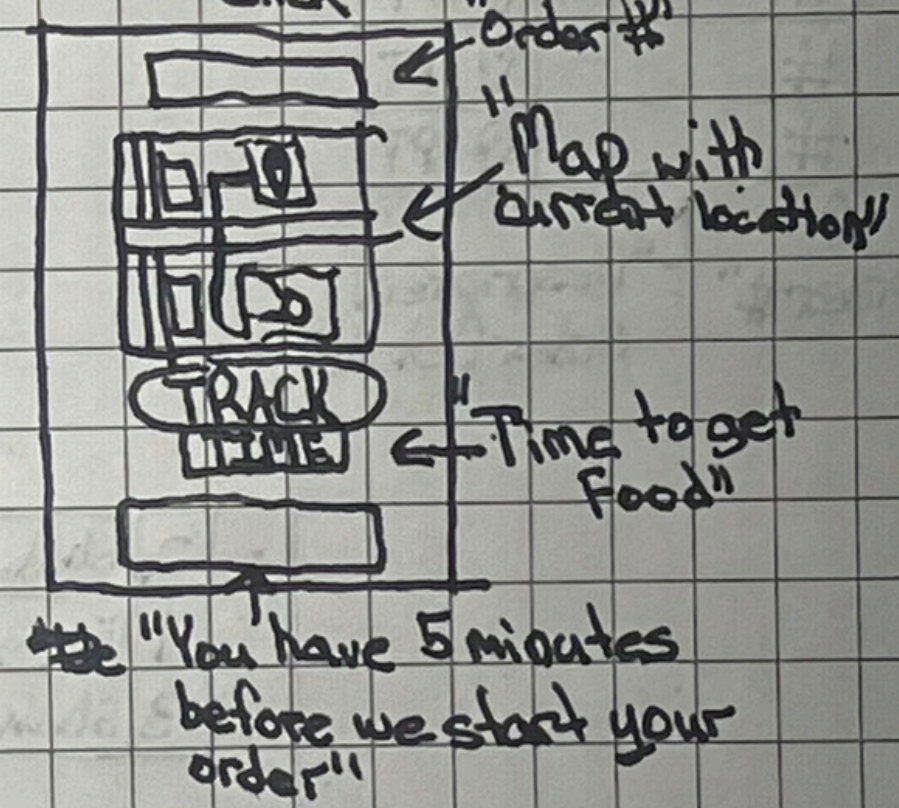 "Order #"
"Map with
current location"
TRACK
TIME
"Time to get
Food"
"You have 5 minutes
before we start your
order"